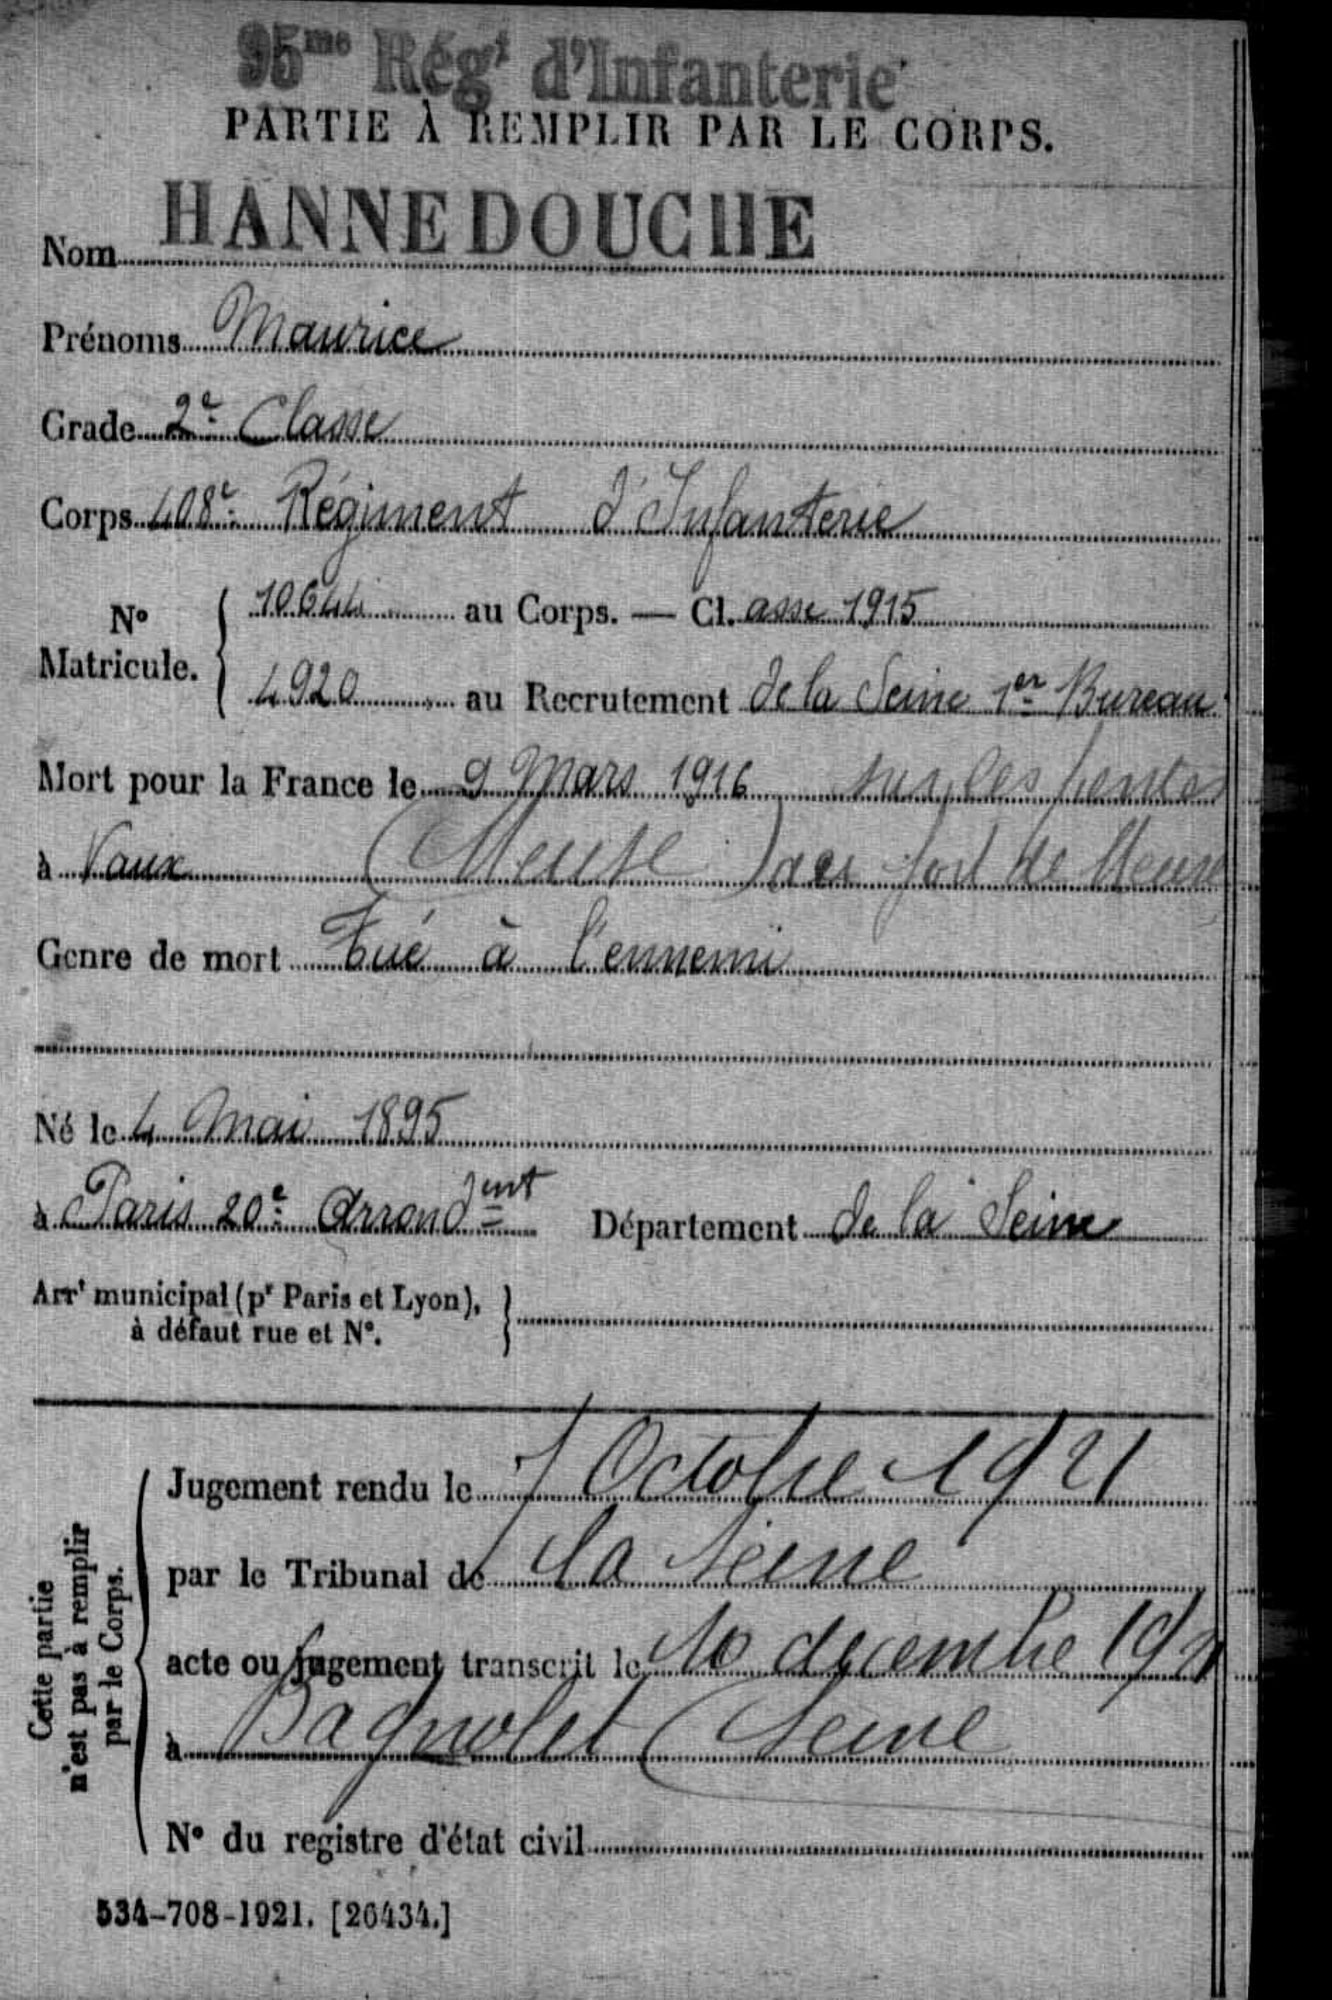 95me Régt d'Infanterie
PARTIE À REMPLIR PAR LE CORPS.
Nom HANNEDOUCHE
Prénoms Maurice
Grade 2e Classe
Corps 408e Régiment d'Infanterie
No Matricule. 10644 au Corps. — Cl. asse 1915
4920 au Recrutement de la Seine 1er Bureau
Mort pour la France le 9 Mars 1916 sur les pentes
à Vaux (Meuse) du fort de
Genre de mort Tué à l'ennemi
Né le 4 Mai 1895
à Paris 20e Arrondent Département de la Seine
Arrt municipal (pr Paris et Lyon),
à défaut rue et No.
Cette partie
n'est pas à remplir
par le Corps.
Jugement rendu le 7 Octobre 1921
par le Tribunal de la Seine
acte ou jugement transcrit le 10 décembre 1921
à Bagnolet (Seine
No du registre d'état civil
534-708-1921. [26434.]